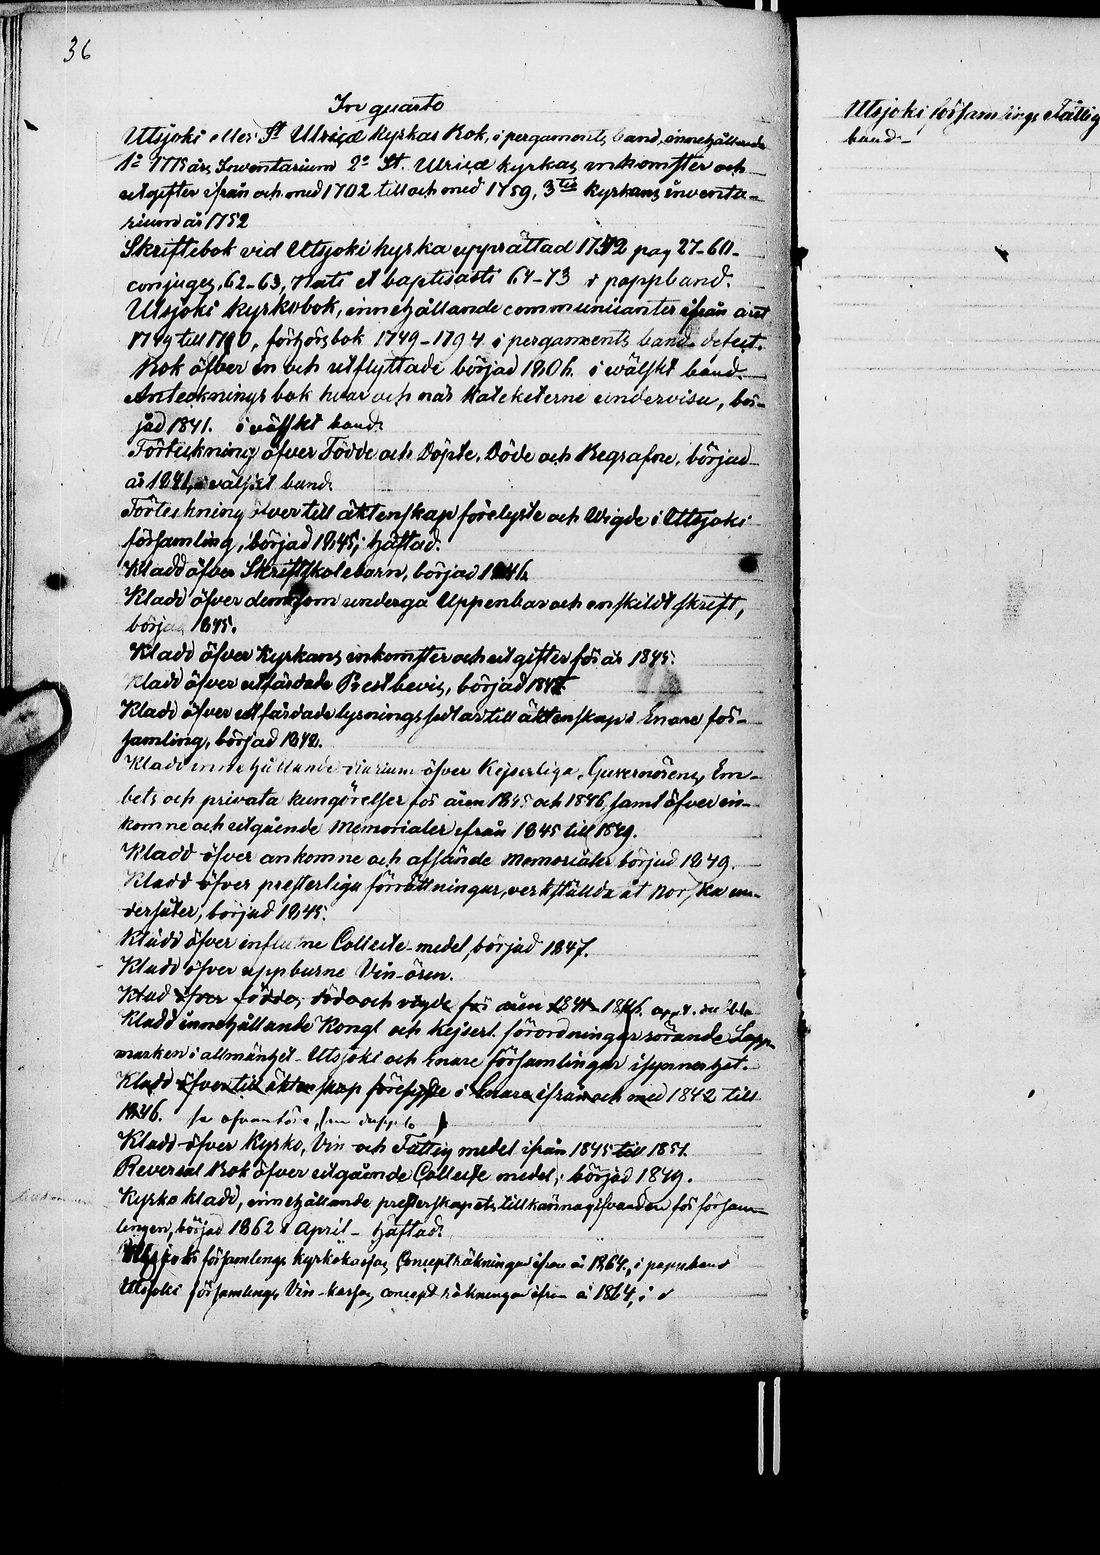 36
In quarto
Utsjoki eller St Ulricæ Kyrkas Bok, i pergaments band, innehållande
1o års Inventarium 2o St. Ulricæ kyrkas inkomster och
utgifter ifrån och med 1702 till och med 1759, 3tio kyrkans inventa-
rium år 1752
Skriftebok vid Utsjoki kyrka upprättad pag 27-60-
conjuges, 62-63, nati et baptisati 64-73 i pappband.
Utsjoki kyrkobok, innehållande communicanter ifrån året
1749 till förhörsbok 1749-1794 i pergaments band defect.
Bok öfver in och utflyttade började i wälskt band.
Antecknings bok hvar och när Kateketerne undervisa, bör-
jad 1841. i välskt band.
Förteckning öfver Födde och Döpte, Döde och Begrafne, börjad
år 1841, i välskt band.
Förteckning öfver till äktenskap förelyste och Wigde i Utsjoki
församling, börjad 1845, häftad.
Kladd öfver Skriftskolebarn, börjad 1846
Kladd öfver dem som undergå Uppenbar och enskildt skrift,
börjad 1845.
Kladd öfver Kyrkans inkomster och utgifter för år 1845.
Kladd öfver utfärdade Prestbevis, börjad
Kladd öfver utfärdade lysningssedlar till äktenskap i Enare för-
samling, börjad 1842.
Kladd innehållande diarium öfver Kejserliga, Guvernörens, Em-
bets och privata kungörelser för åren 1845 och 1846, samt öfver in-
komne och utgående Memorialer ifrån 1845 till 1849.
Kladd öfver ankomne och afsände memorialer börjad 1849.
Kladd öfver presterliga förrättningar, verkställda åt Norska un-
dersåter, börjad 1845.
Kladd öfver influtne Collecte-medel, börjad 1847.
Kladd öfver uppburne Vin-ören.
Klad öfver födda, döda och vigde för åren 1846.
Kladd innehållande Kongl och Kejserl. förordningar rörande Lapp-
marken i allmänhet - Utsjoki och Enare församlingar i synnerhet.
Kladd öfver till äktenskap förelyste i Enare ifrån och med 1842 till
1846.
Kladd öfver Kyrko, Vin och Fattig medel ifrån 1845 till 1851.
Reversal Bok öfver utgående Collecte medel, börjad 1849.
Kyrko kladd, innehållande presterskapets tillkännagifvanden för försam-
lingen, börjad 1862 i April - häftad.
Utsjoki församlings kyrkokassas Concepträkningar ifrån år 1864, i pappband
Utsjoki församlings Vin-kassas concept räkningar ifrån år 1864, i d
Utsjoki församlings Fattig
band-